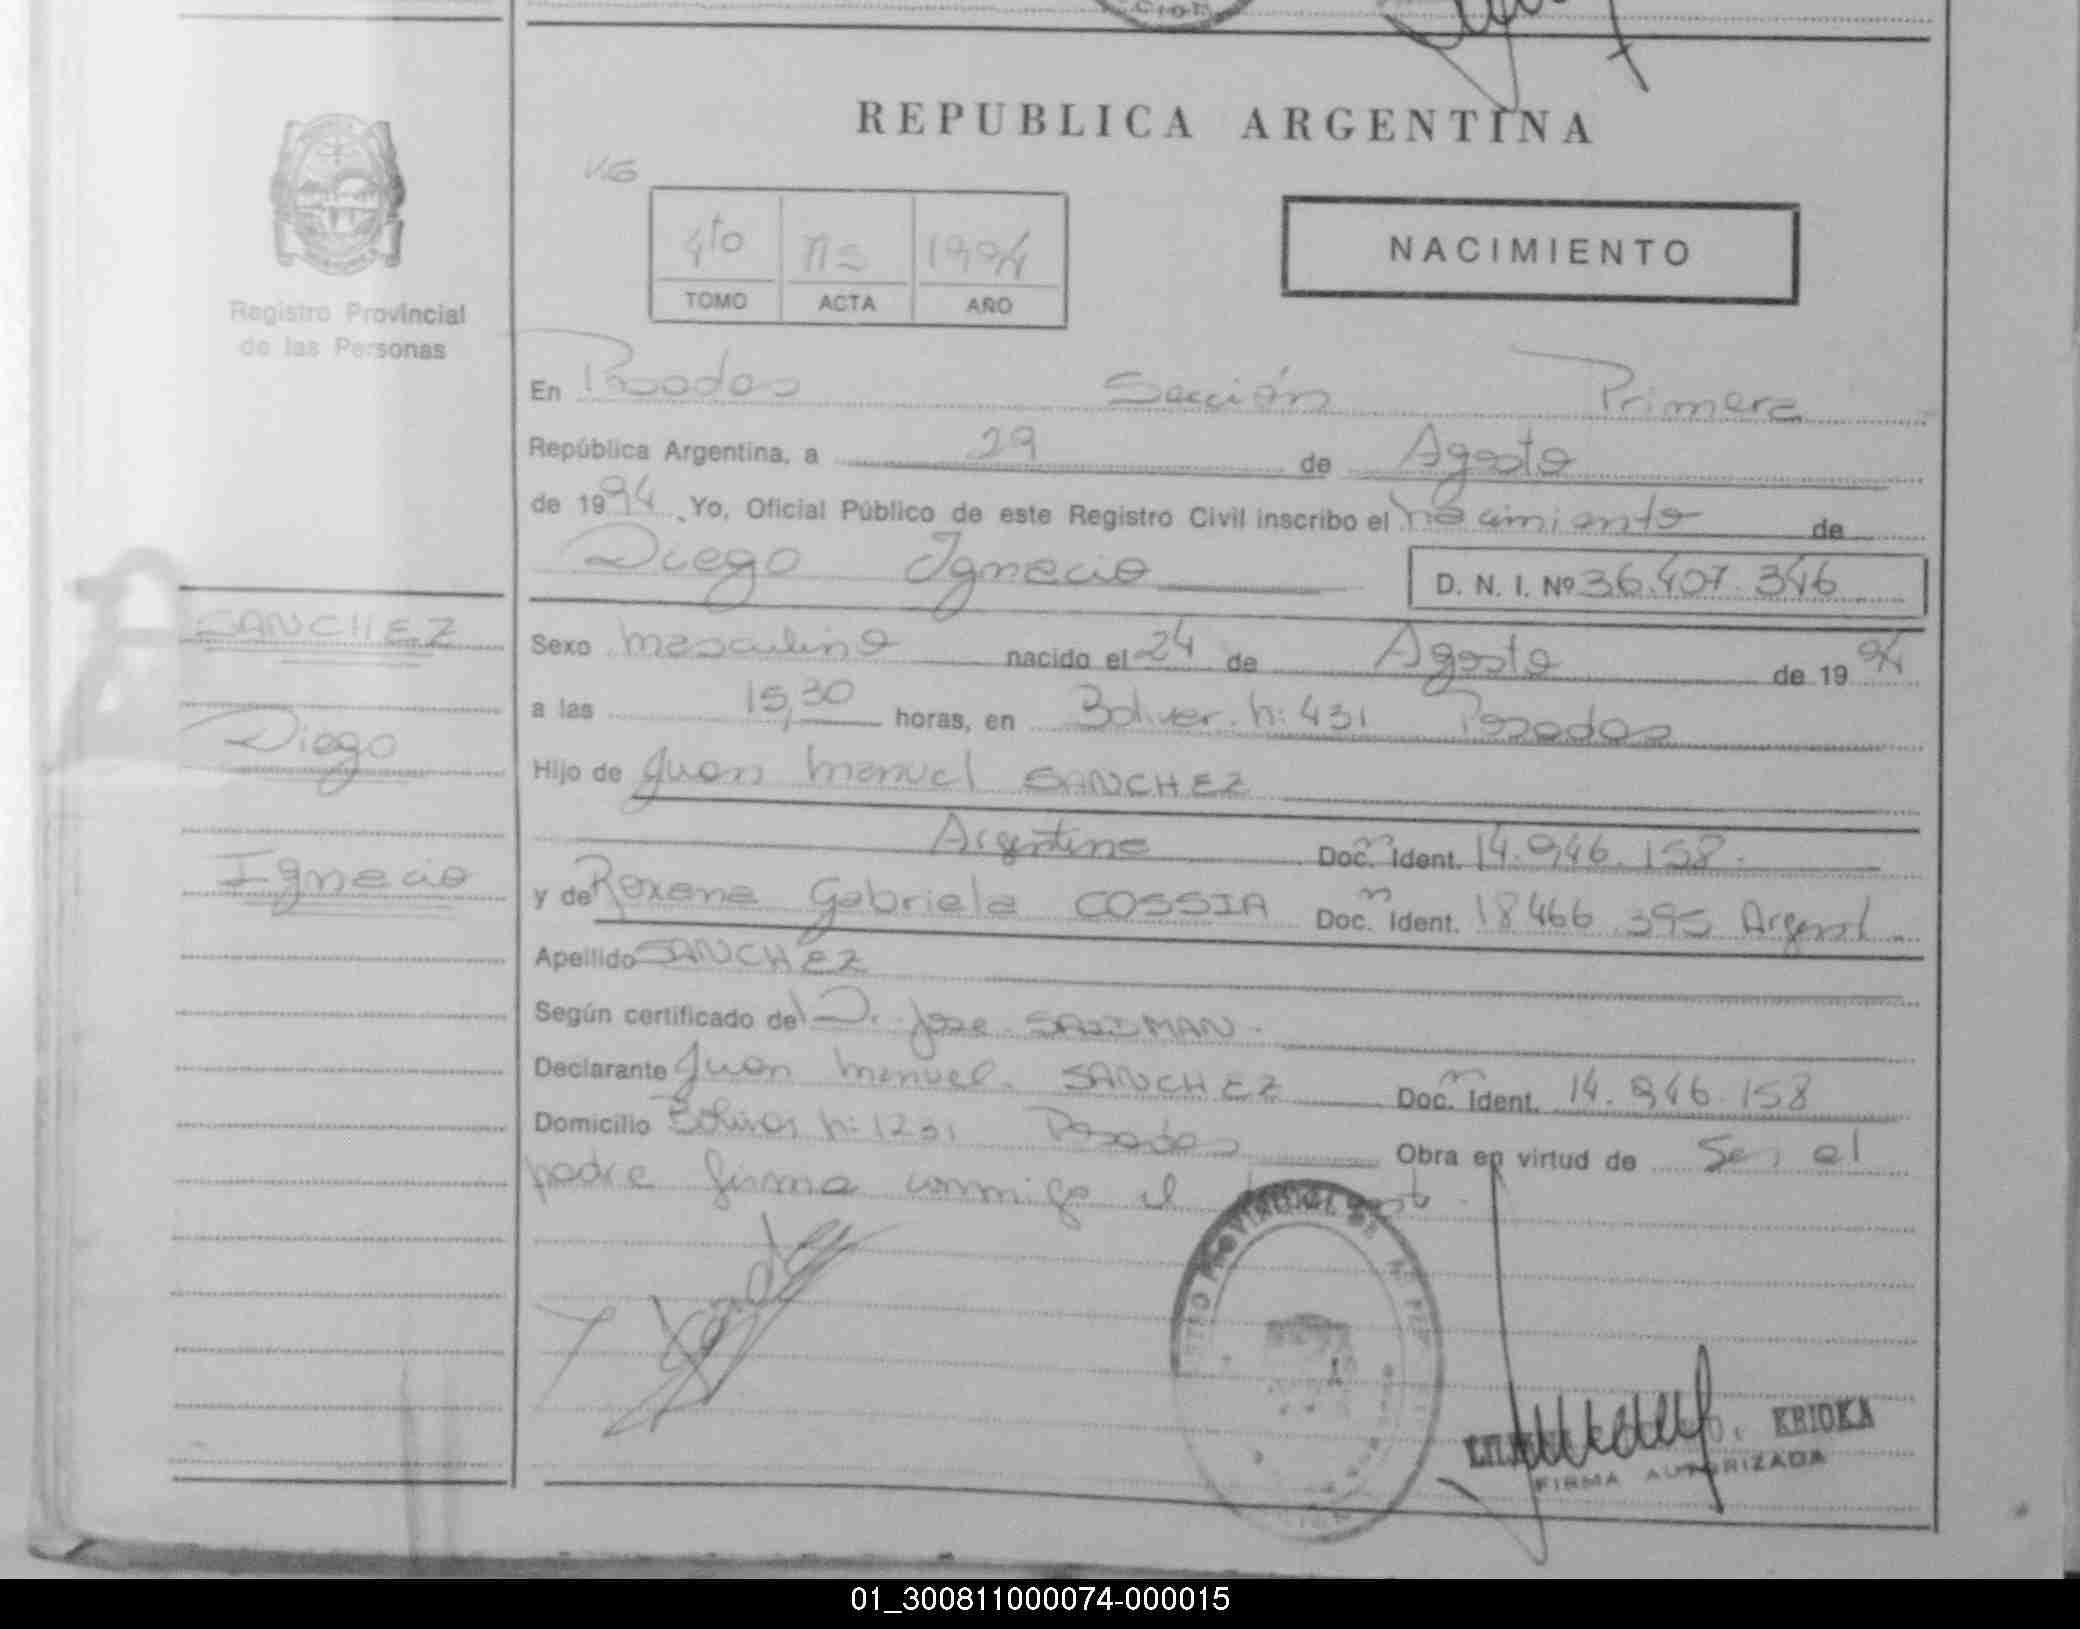 REPUBLICA ARGENTINA
4to
1994
TOMO
ACTA
AÑO
NACIMIENTO
Registro Provincial
de las Personas
En Posadas Sección Primera
República Argentina, a 29 de Agosto
de 1994. Yo, Oficial Público de este Registro Civil inscribo el nacimiento de
Diego Ignacio D. N. I. Nº 36.407.346
SANCHEZ
Diego
Ignacio
Sexo masculino nacido el 24 de Agosto de 1994
a las 15,30 horas, en Bolivar. n: 431 Posadas
Hijo de Juan Manuel SANCHEZ
Argentino Doc. Ident. 14.946.158.
y de Roxana Gabriela COSSIA Doc. Ident. 18466.395 Argent.
Apellido SANCHEZ
Según certificado del D. Jose
Declarante Juan Manuel. SANCHEZ Doc. Ident. 14.946.158
Domicilio Bolivar n: Posadas Obra en virtud de Ser el
padre firma conmigo el
KRIOKA
FIRMA AUTORIZADA
01_300811000074-000015